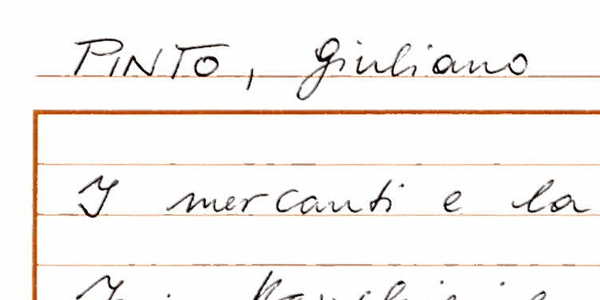 PINTO, Giuliano
I mercanti e la